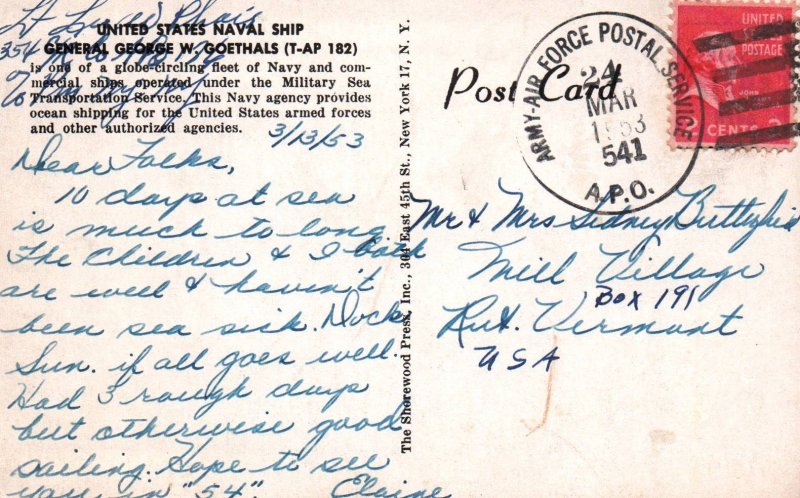 UNITED STATES NAVAL SHIP
GENERAL GEORGE W. GOETHALS (T-AP 182)
is one of a globe-circling fleet of Navy and com-
mercial ships operated under the Military Sea
Transportation Service. This Navy agency provides
ocean shipping for the United States armed forces
and other authorized agencies.
3/13/53
Dear Folks,
10 days at sea
is much to long
The Children & I both
are well & haven't
been sea sick. Docks
Sun. if all goes well.
Had 3 rough days
but otherwise good
sailing. Hope to see
you in "54".
Elaine
The Shorewood Press, Inc., 304 East 45th St., New York 17, N. Y.
Post Card
ARMY-AIR FORCE POSTAL SERVICE
24
MAR
1953
541
A.P.O.
UNITED
STATES
POSTAGE
JOHN
CENTS
Mr & Mrs Sidney Butterfield
Mill Village
Box 191
Rut. Vermont
USA